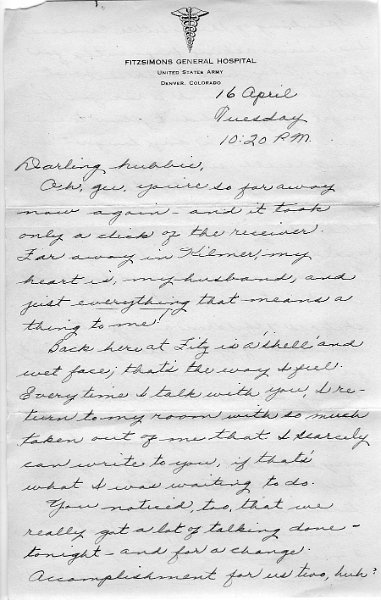 FITZSIMONS GENERAL HOSPITAL
UNITED STATES ARMY
DENVER, COLORADO
16 April
Tuesday
10:20 P.M.
Darling hubbie,
Oh, gee, you're so far away
now again - and it took
only a click of the receiver.
Far away in Kilmer, my
heart is, my husband, and
just everything that means a
thing to me!
Back here at Fitz is a "shell" and
wet face; that's the way I feel.
Everytime I talk with you, I re-
turn to my room with so much
taken out of me that I scarcely
can write to you, if that's
what I was waiting to do.
You noticed, too, that we
really got a lot of talking done -
tonight - and for a change.
Accomplishment for us too, huh?